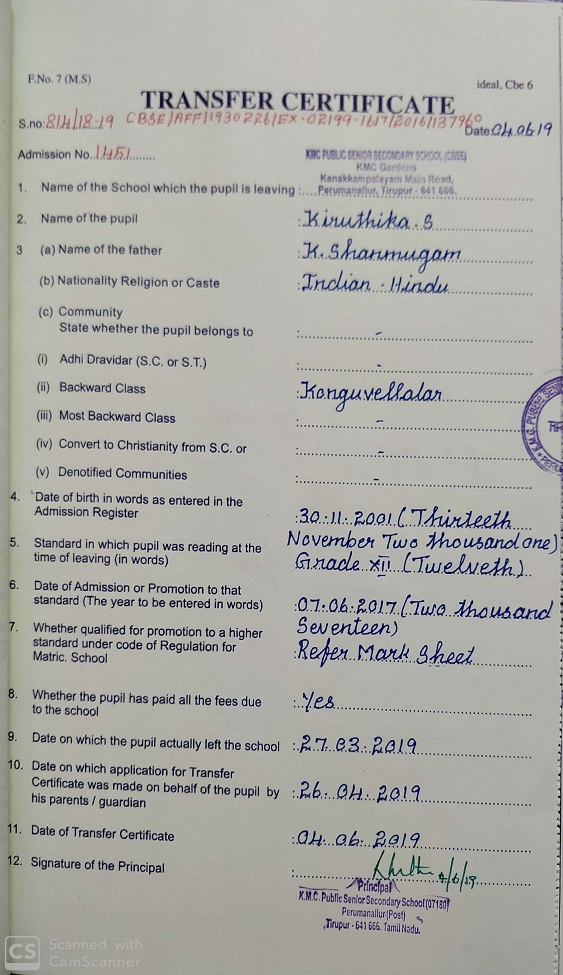 F.No. 7 (M.S)
ideal, Cbe 6
TRANSFER CERTIFICATE
S.no: 814/18-19 CBSE/AFF/1930226/EX-02199-1617/2016/137960
Date: 04.06.19
Admission No. 1451
KMC PUBLIC SENIOR SECONDARY SCHOOL (CBSE)
KMC Gardens
Kanakkampalayam Main Road,
1. Name of the School which the pupil is leaving : Perumanallur, Tirupur - 641 666.
2. Name of the pupil : Kiruthika.S
3 (a) Name of the father : K.Shanmugam
(b) Nationality Religion or Caste : Indian - Hindu
(c) Community
State whether the pupil belongs to : -
(i) Adhi Dravidar (S.C. or S.T.) : -
(ii) Backward Class : Konguvellalar
(iii) Most Backward Class : -
(iv) Convert to Christianity from S.C. or : -
(v) Denotified Communities : -
4. Date of birth in words as entered in the
Admission Register : 30.11.2001 (Thirteeth
November Two thousand one)
5. Standard in which pupil was reading at the
time of leaving (in words) Grade XII (Twelveth)
6. Date of Admission or Promotion to that
standard (The year to be entered in words) : 07.06.2017 (Two thousand
Seventeen)
7. Whether qualified for promotion to a higher
standard under code of Regulation for
Matric. School : Refer Mark Sheet
8. Whether the pupil has paid all the fees due
to the school : Yes
9. Date on which the pupil actually left the school : 27.03.2019
10. Date on which application for Transfer
Certificate was made on behalf of the pupil by : 26.04.2019
his parents / guardian
11. Date of Transfer Certificate : 04.06.2019
12. Signature of the Principal : 4/6/19
Principal
K.M.C. Public Senior Secondary School (07180)
Perumanallur (Post)
Tirupur - 641 666. Tamil Nadu.
CS Scanned with
CamScanner